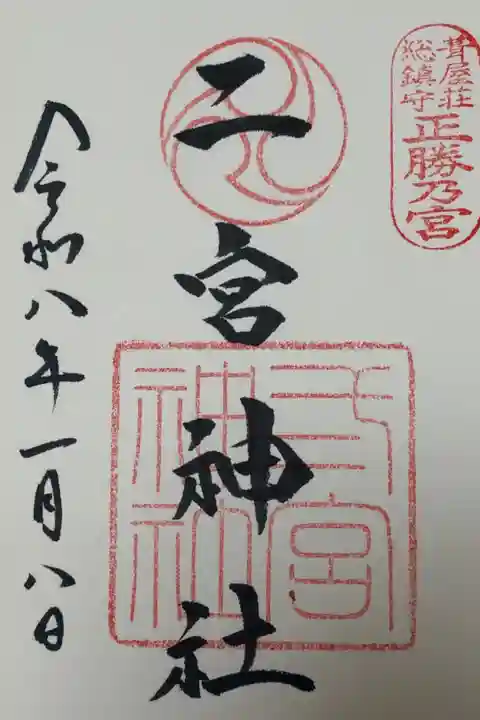 葺屋荘
総鎮守
正勝乃宮
二宮神社
二宮神社
令和八年一月八日